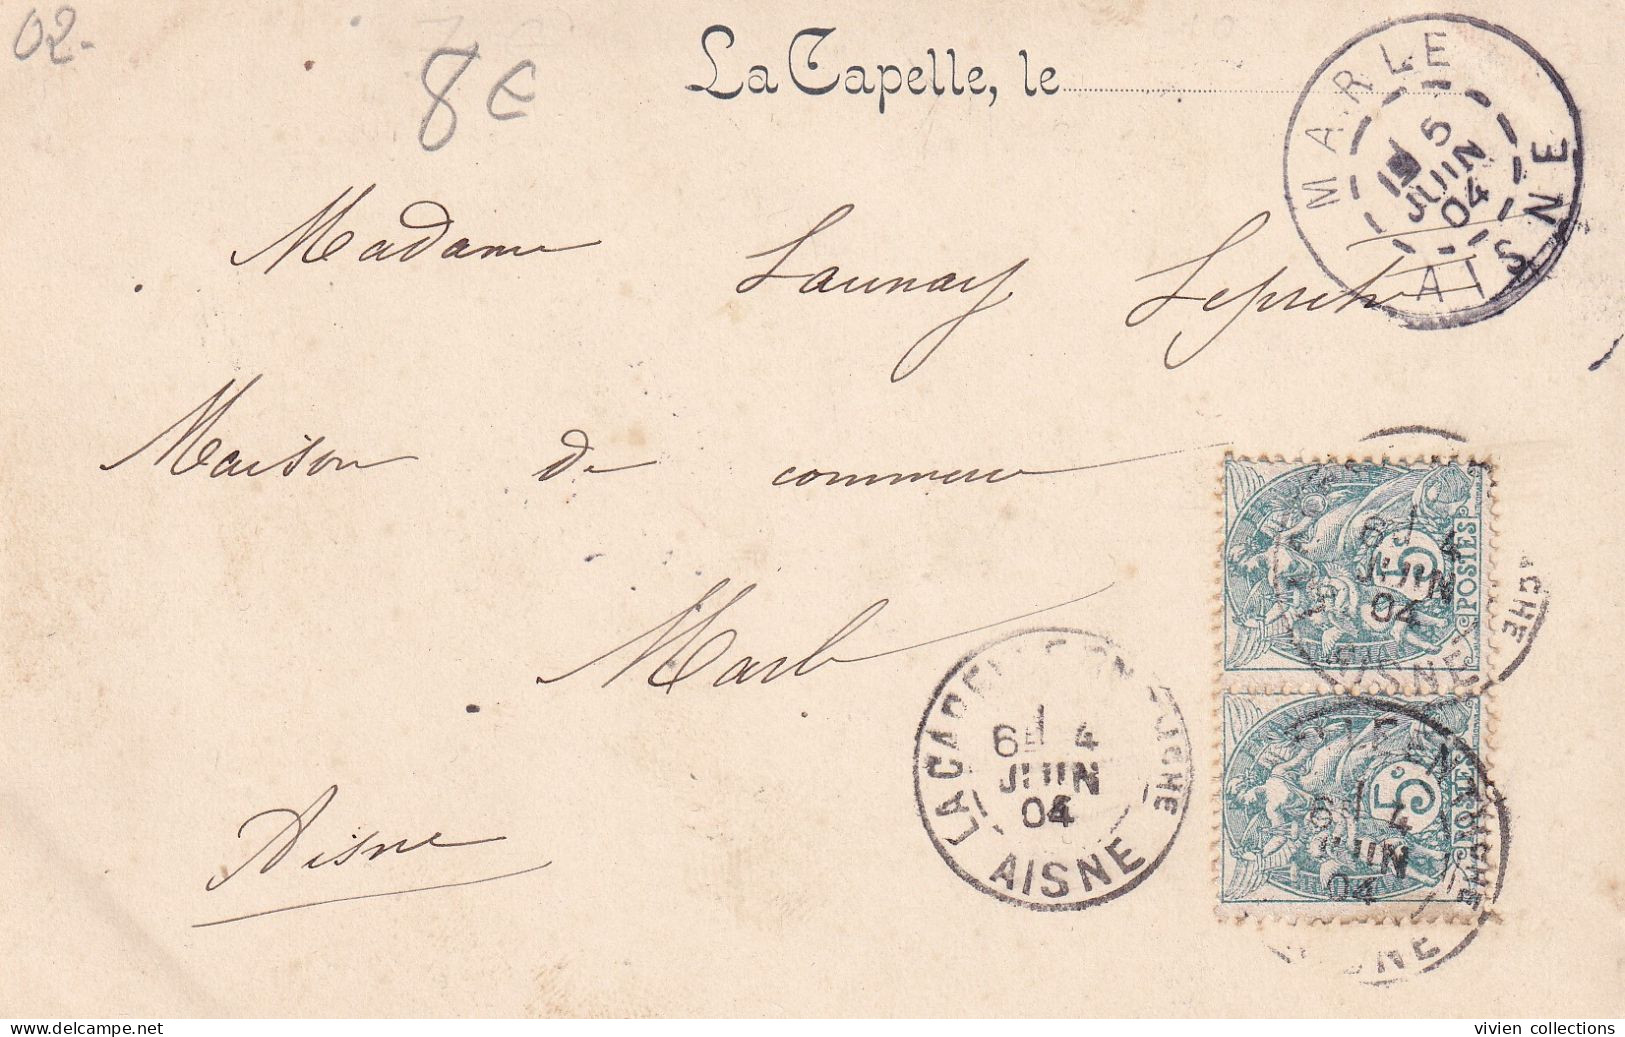 02-
8 €
La Capelle, le
MARLE
5
JUIN
04
AISNE
Madame Launay
Maison de commerce
Marle
Aisne
LA CAPELLE EN
6 4
JUIN
04
AISNE
5c
POSTES
6 4
JUIN
04
AISNE
5c
POSTES
6 4
JUIN
04
www.delcampe.net
vivien collections